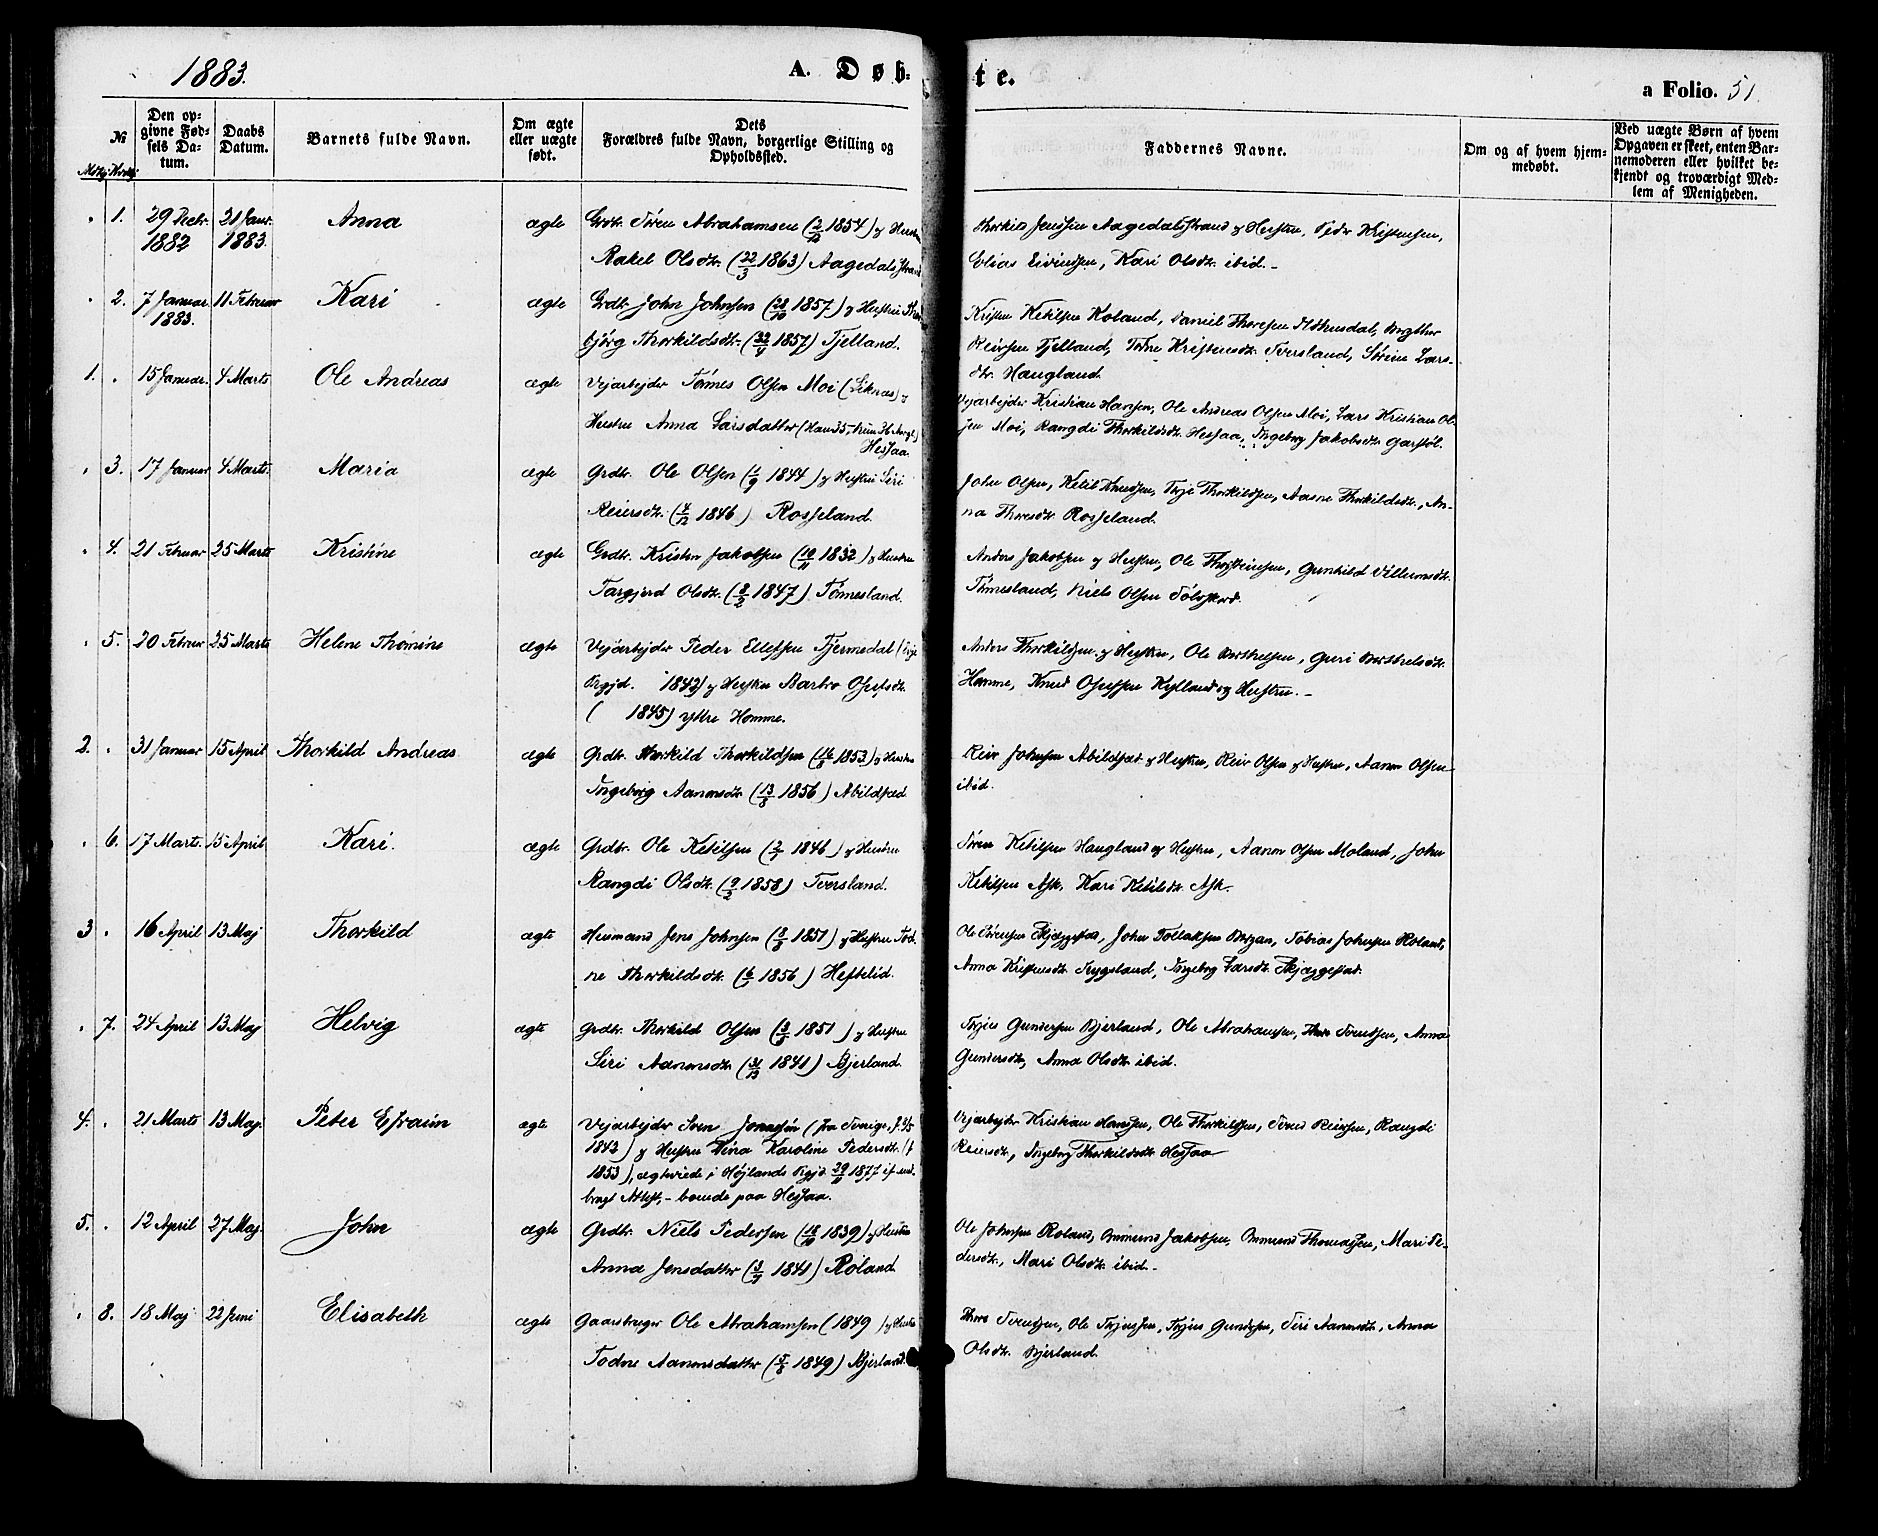 1883.
A. Døb-
te.
a Folio. 51.
№
Mdkj. Kvdkj.
Den op-
givne Fød-
sels Da-
tum.
Daabs
Datum.
Barnets fulde Navn.
Om ægte
eller uægte
født.
Dets
Forældres fulde Navn, borgerlige Stilling og
Opholdssted.
Faddernes Navne.
Om og af hvem hjem-
medøbt.
Ved uægte Børn af hvem
Opgaven er skeet, enten Bar-
nemoderen eller hvilket be-
kjendt og troværdigt Med-
lem af Menigheden.
1. 29 Decbr. 1882 21 Janr. 1883. Anna ægte Grdbr. Sören Abrahamsen (2/12 1854) og Hustru
Rakel Olsdtr. (22/3 1863) Aagedalsstrand
Thorkild Jenssen Aagedalsstrand og Hustru, Peder Kristensen,
Elias Eivindsen, Kari Olsdtr. ibid.-
2. 7 Januar 1883. 11 Februar Kari ægte Grdbr. John Johnsen (28/10 1857) og Hustru Thor-
björg Thorkildsdtr. (22/4 1857) Fjelland.
Kristen Ketilsen Roland, Daniel Thoresen
Reiersen Fjelland, Tone Kristensdtr. Tveesland, Sörine Lars-
dtr. Haugland.
1. 15 Januar. 4 Marts Ole Andreas ægte Vejarbejder Tönnes Olsen Moi (Liknæs) og
Hustru Anna Larsdatter
Hessaa.
Vejarbejder Kristian Hansen, Ole Andreas Olsen Moi, Lars Kristian Ol-
sen Moi, Rangdi Thorkildsdtr. Hessaa, Ingeborg Jakobsdtr. Garstöl.
3. 17 Januar 4 Marts. Maria ægte Grdbr. Ole Olsen (1/9 1844) og Hustru Siri
Reiersdtr. (4/12 1846) Rosseland.
John Olsen, Ketil Knudsen, Terje Thorkildsen, Aasne Thorkildsdtr., An-
na Thoresdtr. Rosseland.
4. 21 Februar 25 Marts Kristine ægte Grdbr. Kristen Jakobsen (10/11 1832) og Hustru
Targjerd Olsdtr. (8/2 1847) Tönnesland.
Anders Jakobsen og Hustru, Ole Thorsteinsen, Gunhild Villumsdtr.
Tönnesland, Niels Olsen
5. 20 Februar 25 Marts Helene Thomine ægte Vejarbejder Peder Ellefsen Fjermedal
Prgjd. 1842) og Hustru Barbro Osufsdtr.
( 1845) Yttre Homme.
Anders Thorkildsen og Hustru, Ole Berthelsen, Guri Berthelsdtr.
Homme, Knud Osufsen Kylland og Hustru.-
2. 31 Januar 15 April Thorkild Andreas ægte Grdbr. Thorkild Thorkildsen (16/5 1853) og Hustru
Ingeborg Aanensdtr. (13/8 1856) Abildsæd
Reier Johnsen Abildsæd og Hustru, Reier Olsen og Hustru, Aanen Olsen
ibid.
6. 17 Marts. 15 April Kari. ægte Grdbr. Ole Ketilsen (2/1 1846) og Hustru
Rangdi Olsdtr. (9/2 1858) Tveesland.
Sören Ketilsen Haugland og Hustru, Aanen Olsen Moland, John
Ketilsen Ask, Kari Ketilsdtr. Ask.
3. 16 April 13 Maj Thorkild ægte Husmand Jens Johnsen (8/8 1851) og Hustru Tod-
ne Thorkildsdtr. (6/5 1856) Heftelid.
Ole Sörensen Skjæggestad, John Tollaksen Bergan, Tobias Johnsen Roland,
Anna Kristensdtr. Trygsland, Ingeborg Larsdtr. Skjæggestad.
7. 24 April 13 Maj Helvig ægte Grdbr. Thorkild Olsen (3/3 1851) og Hustru
Siri Aanensdtr. (31/12 1841) Bjerland.
Terjus Gundersen Bjerland, Ole Abrahamsen, Thore Svendsen, Anna
Gundersdtr., Anna Olsdtr. ibid.
4. 21 Marts 13 Maj. Peter Efraim ægte Vejarbejder Sven Jonassen (fra Sverige, f. 4/5
1842) og Hustru Vina Karoline Pedersdtr. (f
1853), ægteviede i Höjlands Prgjd. 29/11 1877 if. ind-
bragt Attest, - boende paa Hessaa.
Vejarbejder Kristian Hansen, Ole Thorkildsen, Reiersen, Rangdi
Reiersdtr., Ingeborg Thorkildsdtr. Hessaa
5. 12 April 27 Maj. John ægte Grdbr. Niels Pedersen (18/10 1839) og Hustru
Anna Jensdatter (3/7 1841) Roland.
Ole Johnsen Roland, Ommund Jakobsen, Ommund Thomassen, Mari Pe-
dersdtr., Mari Olsdtr. ibid.-
8. 18 Maj 22 Juni Elisabeth ægte Gaardbruger Ole Abrahamsen (1849 ) og Hustru
Todne Aanensdatter (5/8 1849) Bjerland.
Thore Svendsen, Ole Terjussen, Terjus Gundersen, Siri Aanensdtr., Anna
Olsdtr. Bjerland.